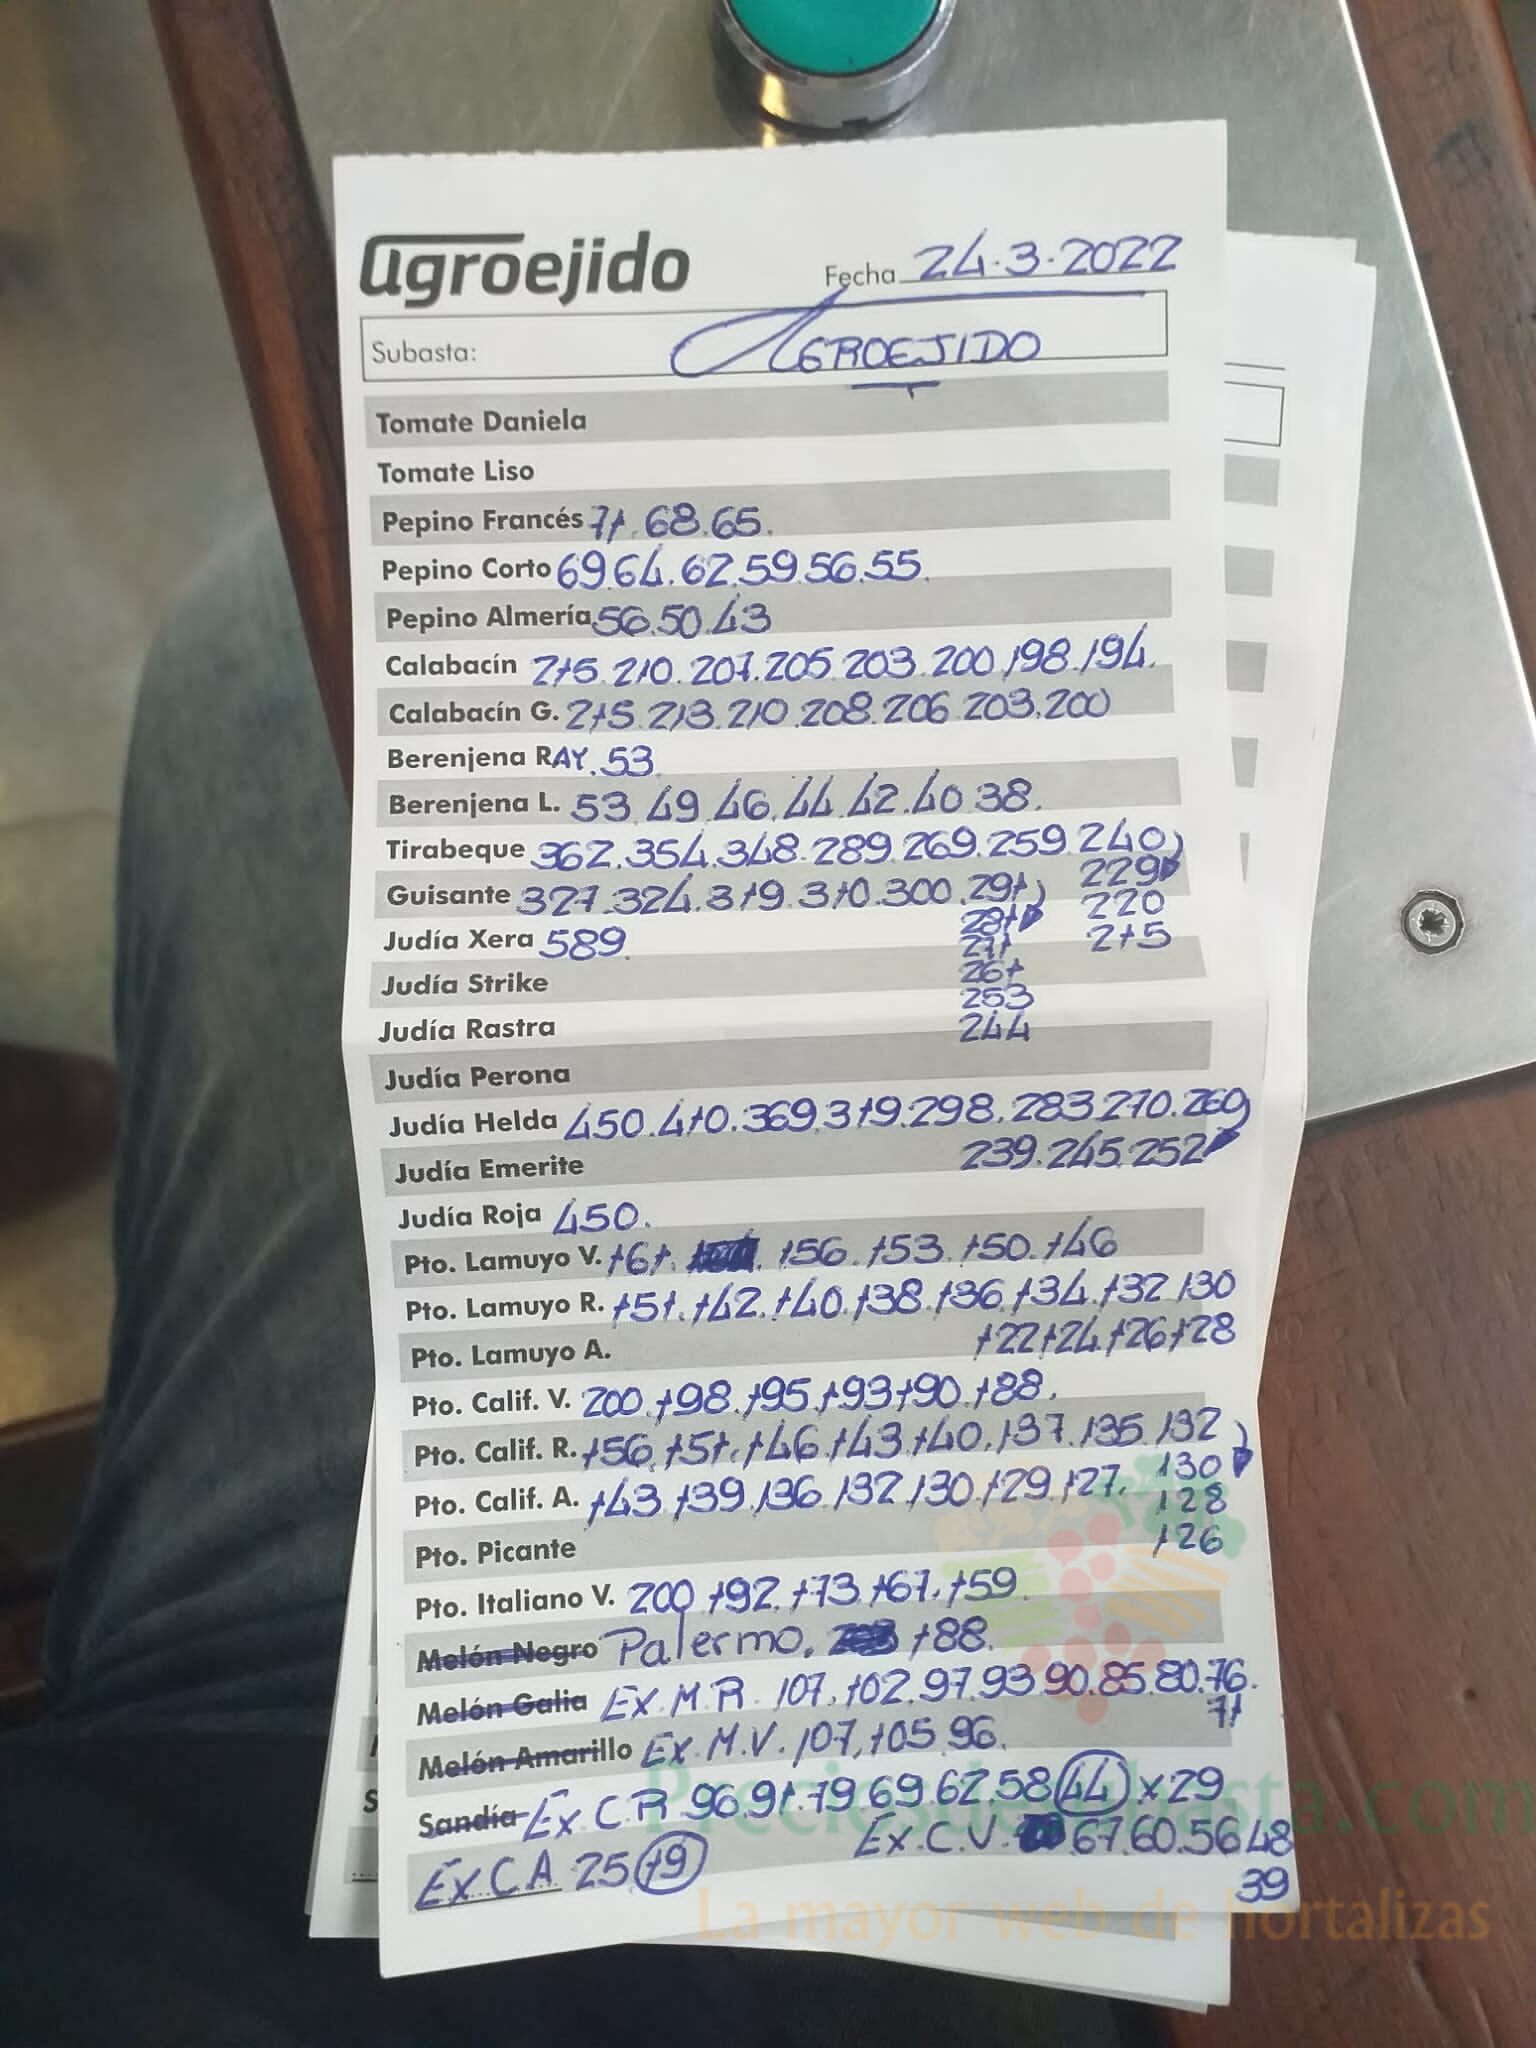 agroejido Fecha 24.3.2022
Subasta: AGROEJIDO
Tomate Daniela
Tomate Liso
Pepino Francés 71.68.65.
Pepino Corto 69.64.62.59.56.55.
Pepino Almería 56.50.43
Calabacín 215.210.207.205.203.200.198.194.
Calabacín G. 215.213.210.208.206.203.200
Berenjena RAY.53
Berenjena L. 53.49.46.44.42.40.38.
Tirabeque 362.354.348.289.269.259.240
229
Guisante 327.324.319.310.300.291
281 220
Judía Xera 589. 271 215
261
Judía Strike
253
Judía Rastra 244
Judía Perona
Judía Helda 450.410.369.319.298.283.270.260
Judía Emerite 239.245.252
Judía Roja 450.
Pto. Lamuyo V. 161. 156.153.150.146
Pto. Lamuyo R. 151.142.140.138.136.134.132.130
Pto. Lamuyo A. 122.124.126.128
Pto. Calif. V. 200.198.195.193.190.188.
Pto. Calif. R. 156.151.146.143.140.137.135.132
130
Pto. Calif. A. 143.139.136.132.130.129.127. 128
Pto. Picante 126
Pto. Italiano V. 200.192.173.167.159.
Melón Negro Palermo. 188.
Melón Galia Ex.M.R. 107.102.97.93.90.85.80.76.
71
Melón Amarillo Ex.M.V. 107.105.96.
Sandía Ex C R 96.91.79.69.62.58 44 x 29
Ex.C.V. 67.60.56.48
Ex C A 25 19 39
Preciosdesubasta.com
La mayor web de hortalizas